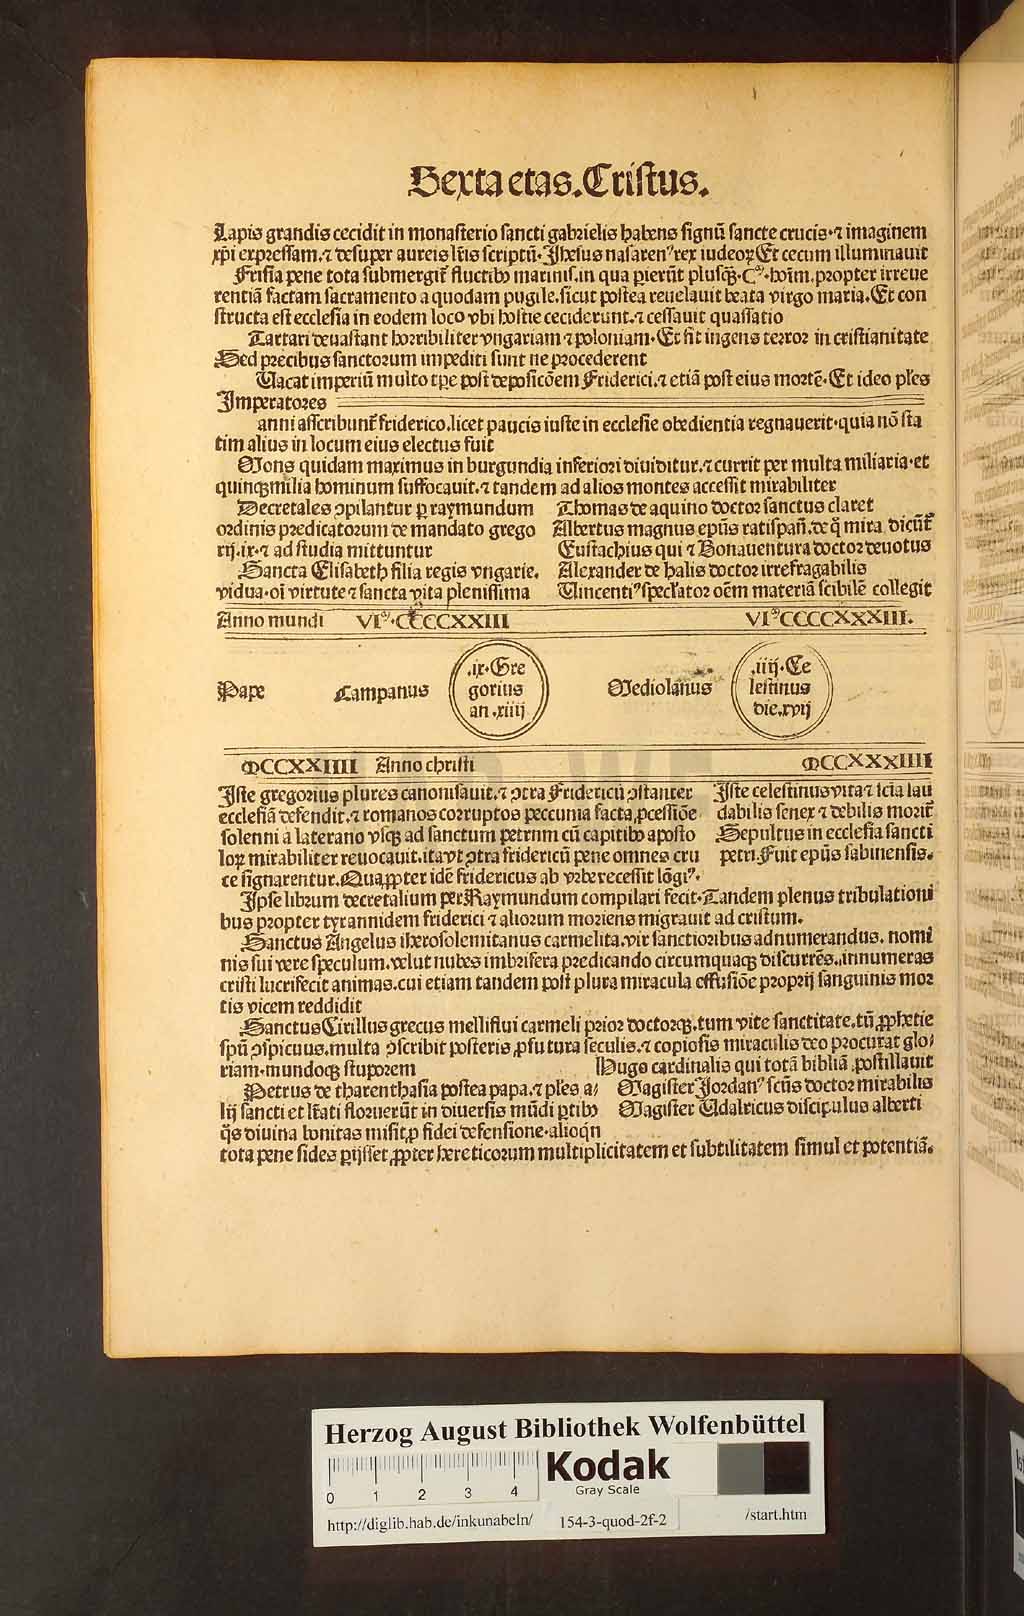 Sexta etas. Cristus.
Lapis grandis cecidit in monasterio sancti gabrielis habens signū sancte crucis·⁊ imaginem
xp̄i expressam.⁊ desuper aureis lr̄is scriptū· Jhesus nasarenꝰ rex iudeoꝝ Et cecum illuminauit
Frisia pene tota submergit᷑ fluctibꝰ marinis.in qua ꝑierūt plusqꝫ·Cᵐ·hoīm.propter irreue
rentiā factam sacramento a quodam pugile.sicut postea reuelauit beata virgo maria.Et con
structa est ecclesia in eodem loco vbi hostie ceciderunt.⁊ cessauit quassatio
Tartari deuastant horribiliter vngariam ⁊ poloniam·Et fit ingens terror in cristianitate
Sed precibus sanctorum impediti sunt ne procederent
Uacat imperiū multo tp̄e post deposicōem Friderici.⁊ etiā post eius mortē·Et ideo pl̄es
Imperatores
anni asscribunt᷑ friderico.licet paucis iuste in ecclesie obedientia regnauerit·quia nō sta
tim alius in locum eius electus fuit
Mons quidam maximus in burgundia inferiori diuiditur.⁊ currit per multa miliaria·et
quinqꝫ milia hominum suffocauit.⁊ tandem ad alios montes accessit mirabiliter
Decretales ꝯpilantur ꝑ raymundum
ordinis predicatorum de mandato grego
rij.ix·⁊ ad studia mittuntur
Sancta Elisabeth filia regis vngarie.
vidua·oī virtute ⁊ sancta vita plenissima
Thomas de aquino doctor sanctus claret
Albertus magnus ep̄us ratispan̄.de q̄ mira dicūt᷑
Eustachius qui ⁊ Bonauentura doctor deuotus
Alexander de halis doctor irrefragabilis
Uincentiꝰ specl̄ator oēm materiā scibilē collegit
Anno mundi VIᵐ·CCCCXXIII VIᵐCCCCXXXIII.
Pape Campanus .ix·Gre
gorius
an.xiiij
Mediolanus .iiij·Ce
lestinus
die.xvij
MCCXXIIII Anno christi MCCXXXIIII
Iste gregorius plures canonisauit.⁊ ꝯtra Fridericū ꝯstanter
ecclesiā defendit.⁊ romanos corruptos peccunia facta ꝓcessiōe
solenni a laterano vsqꝫ ad sanctum petrum cū capitibꝰ aposto
loꝝ mirabiliter reuocauit.ita vt ꝯtra fridericū pene omnes cru
ce signarentur.Quaꝓpter idē fridericus ab vrbe recessit lōgiꝰ.
Iste celestinus vita ⁊ sciā lau
dabilis senex ⁊ debilis morit᷑
Sepultus in ecclesia sancti
petri.Fuit ep̄us sabinensis.
Ipse librum decretalium per Raymundum compilari fecit·Tandem plenus tribulationi
bus propter tyrannidem friderici ⁊ aliorum moriens migrauit ad cristum.
Sanctus Angelus iherosolemitanus carmelita.vir sanctioribus adnumerandus. nomi
nis sui vere speculum.velut nubes imbrifera predicando circumquaqꝫ discurrēs.innumeras
cristi lucrifecit animas.cui etiam tandem post plura miracula effusiōe proprij sanguinis mor
tis vicem reddidit
Sanctus Cirillus grecus melliflui carmeli prior doctorqꝫ.tum vite sanctitate.tū ꝓphetie
spū ꝯspicuus.multa ꝯscribit posteris ꝓfutura seculis.⁊ copiosis miraculis deo procurat glo/
riam·mundoqꝫ stuporem
Hugo cardinalis qui totā bibliā ꝓpostillauit
Petrus de tharenthasia postea papa.⁊ pl̄es a/
lij sancti et lr̄ati floruerūt in diuersis mūdi ꝑtibꝰ
q̄s diuina bonitas misit ꝓ fidei defensione·alioqn̄
Magister Jordanꝰ scūs doctor mirabilis
Magister Udalricus discipulus alberti
tota pene fides ꝑijsset ꝓpter hereticorum multiplicitatem et subtilitatem simul et potentiā.
Herzog August Bibliothek Wolfenbüttel
0 1 2 3 4
Kodak
Gray Scale
http://diglib.hab.de/inkunabeln/ 154-3-quod-2f-2 /start.htm